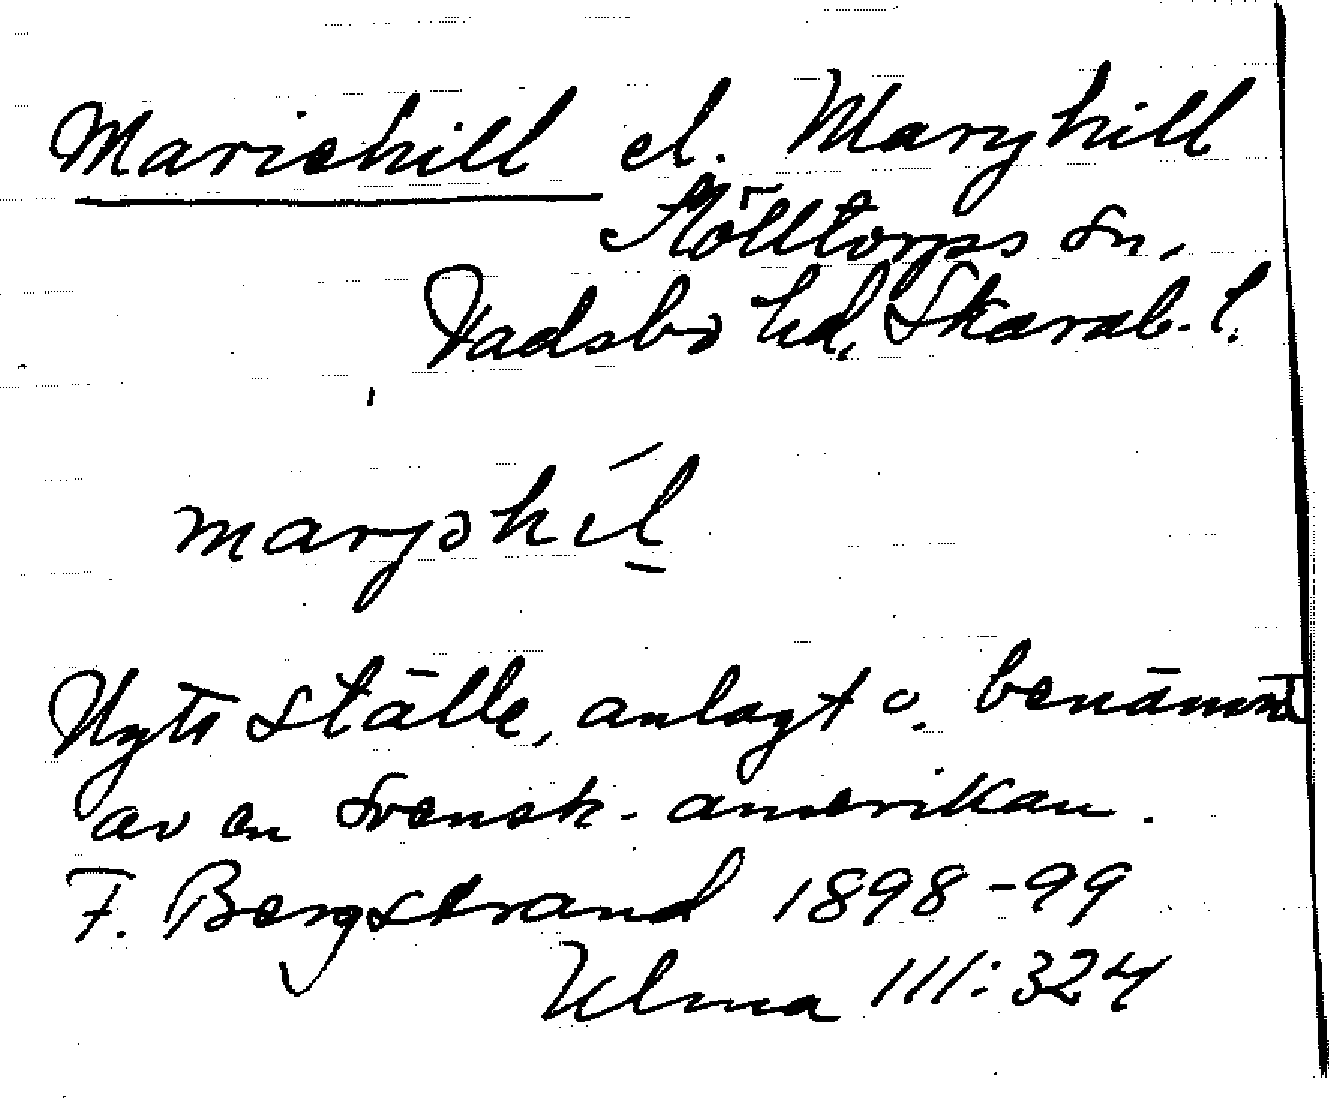 Mariehill el. Maryhill
Mölltorps sn,
Vadsbo hd, Skarab. l.
maryshil
Nytt ställe, anlagt o. benämnt
av en svensk-amerikan.
F. Bergstrand 1898-99
Ulma 111:324